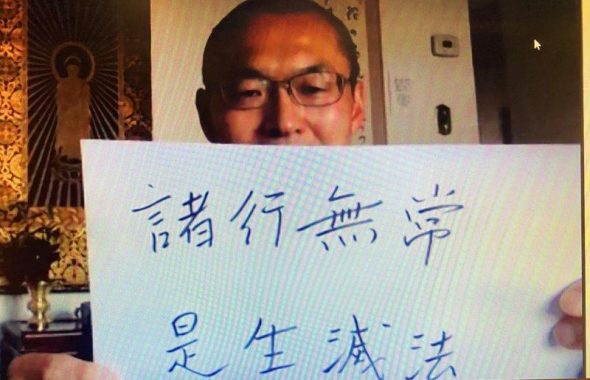 諸行無常
是生滅法